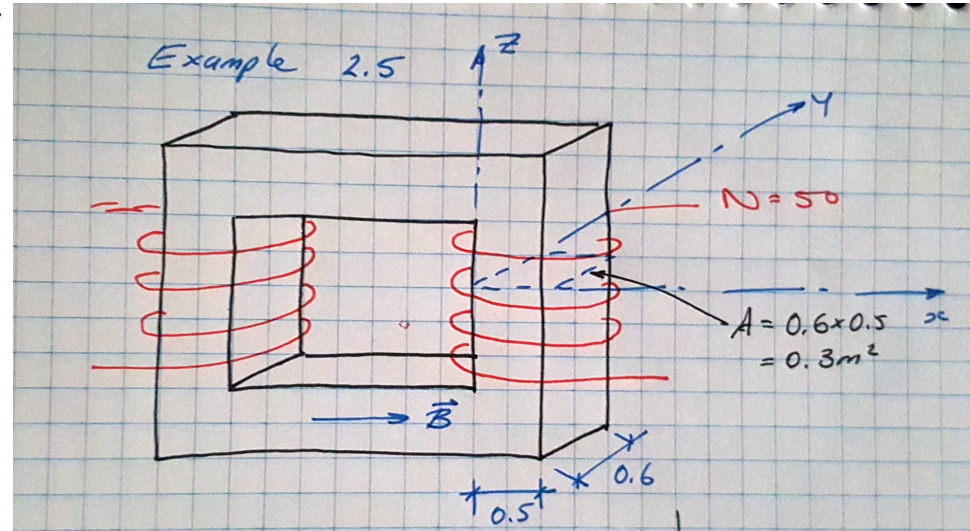 Example 2.5
Z
Y
N = 50
x
A = 0.6×0.5
= 0.3m²
B⃗
0.6
0.5